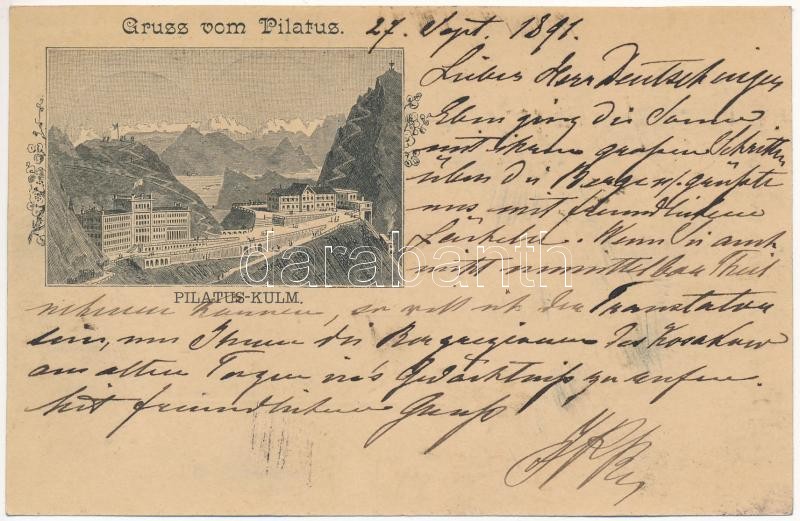 Gruss vom Pilatus.
27. Sept. 1891.
Lieber Herr Deutschinger
Eben ging die Sonne
mit ihren großen Schritten
über die Berge u. grüßte
uns mit freundlichem
Lächeln. Wenn Sie auch
nicht unmittelbar Theil
nehmen können, so will ich der Translator
sein, um Ihnen des
aus alten Tagen ins Gedächtniß zu rufen.
Mit freundlichem Gruß
PILATUS-KULM.
darabanth